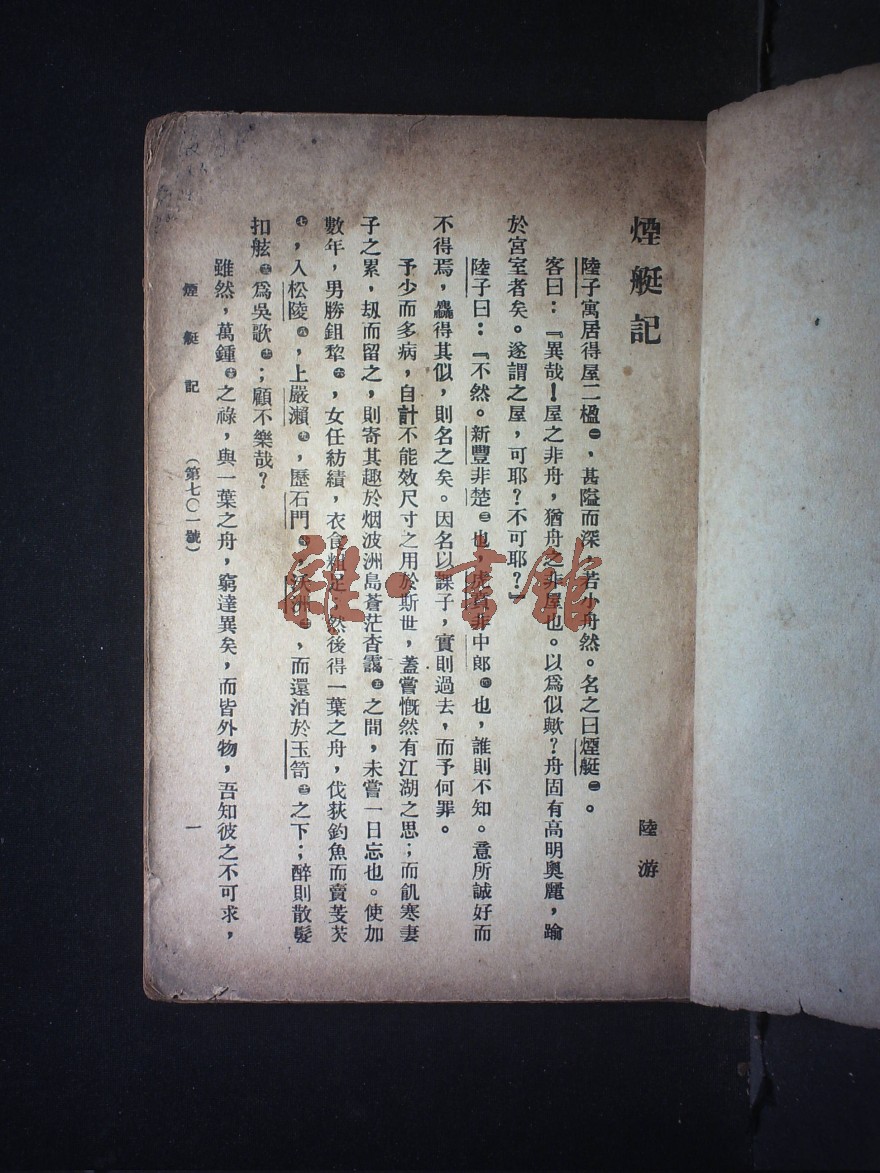 煙艇記
陸游
陸子寓居得屋二楹㊀,甚隘而深,若小舟然。名之曰煙艇㊁。
客曰:『異哉!屋之非舟,猶舟之非屋也。以爲似歟?舟固有高明奧麗,踰
於宮室者矣。遂謂之屋,可耶?不可耶?』
陸子曰:『不然。新豐非楚㊂也,虎賁非中郎㊃也,誰則不知。意所誠好而
不得焉,麤得其似,則名之矣。因名以課子,實則過去,而予何罪。
予少而多病,自計不能效尺寸之用於斯世,蓋嘗慨然有江湖之思;而飢寒妻
子之累,刼而留之,則寄其趣於烟波洲島蒼茫杳靄㊄之間,未嘗一日忘也。使加
數年,男勝鉏犂㊅,女任紡績,衣食粗足,然後得一葉之舟,伐荻釣魚而賣芰芡
㊆,入松陵㊇,上嚴瀨㊈,歷石門㊉,沃洲,而還泊於玉笥之下;醉則散髮
扣舷爲吳歌;顧不樂哉?
雖然,萬鍾之祿,與一葉之舟,窮達異矣,而皆外物,吾知彼之不可求,
煙艇記 (第七〇一號) 一
雜·書館